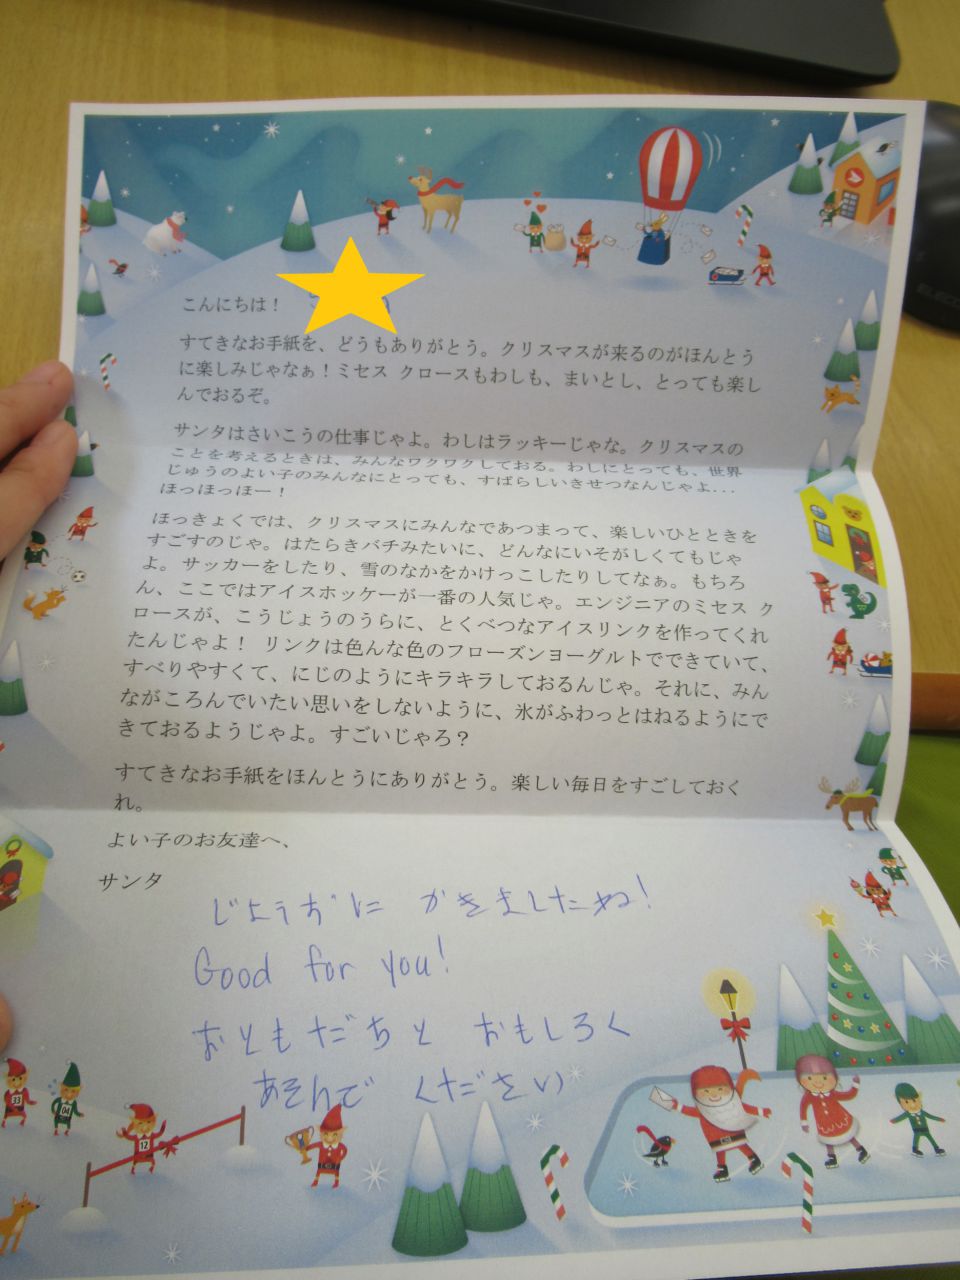 こんにちは！
すてきなお手紙を、どうもありがとう。クリスマスが来るのがほんとう
に楽しみじゃなぁ！ミセス クロースもわしも、まいとし、とっても楽し
んでおるぞ。
サンタはさいこうの仕事じゃよ。わしはラッキーじゃな。クリスマスの
ことを考えるときは、みんなワクワクしておる。わしにとっても、世界
じゅうのよい子のみんなにとっても、すばらしいきせつなんじゃよ...
ほっほっほー！
ほっきょくでは、クリスマスにみんなであつまって、楽しいひとときを
すごすのじゃ。はたらきバチみたいに、どんなにいそがしくてもじゃ
よ。サッカーをしたり、雪のなかをかけっこしたりしてなぁ。もちろ
ん、ここではアイスホッケーが一番の人気じゃ。エンジニアのミセス ク
ロースが、こうじょうのうらに、とくべつなアイスリンクを作ってくれ
たんじゃよ！ リンクは色んな色のフローズンヨーグルトでできていて、
すべりやすくて、にじのようにキラキラしておるんじゃ。それに、みん
ながころんでいたい思いをしないように、氷がふわっとはねるようにで
きておるようじゃよ。すごいじゃろ？
すてきなお手紙をほんとうにありがとう。楽しい毎日をすごしておく
れ。
よい子のお友達へ、
サンタ
じょうずに かきましたね!
Good for you!
おともだちと おもしろく
あそんで ください
33
04
12